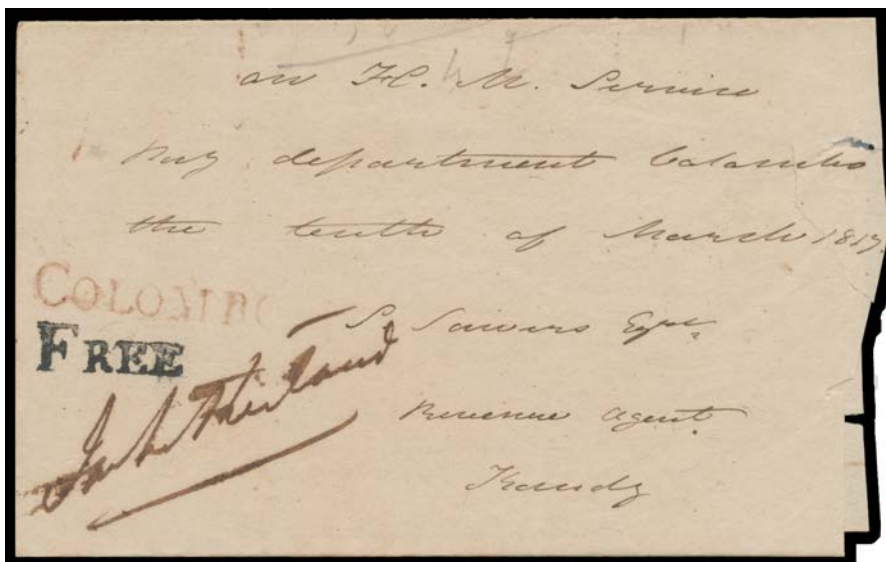 on H. M. Service
Pay department Colombo
the tenth of March 1817.
COLOMBO
FREE
S Sawers Esqre
Revenue Agent.
Kandy